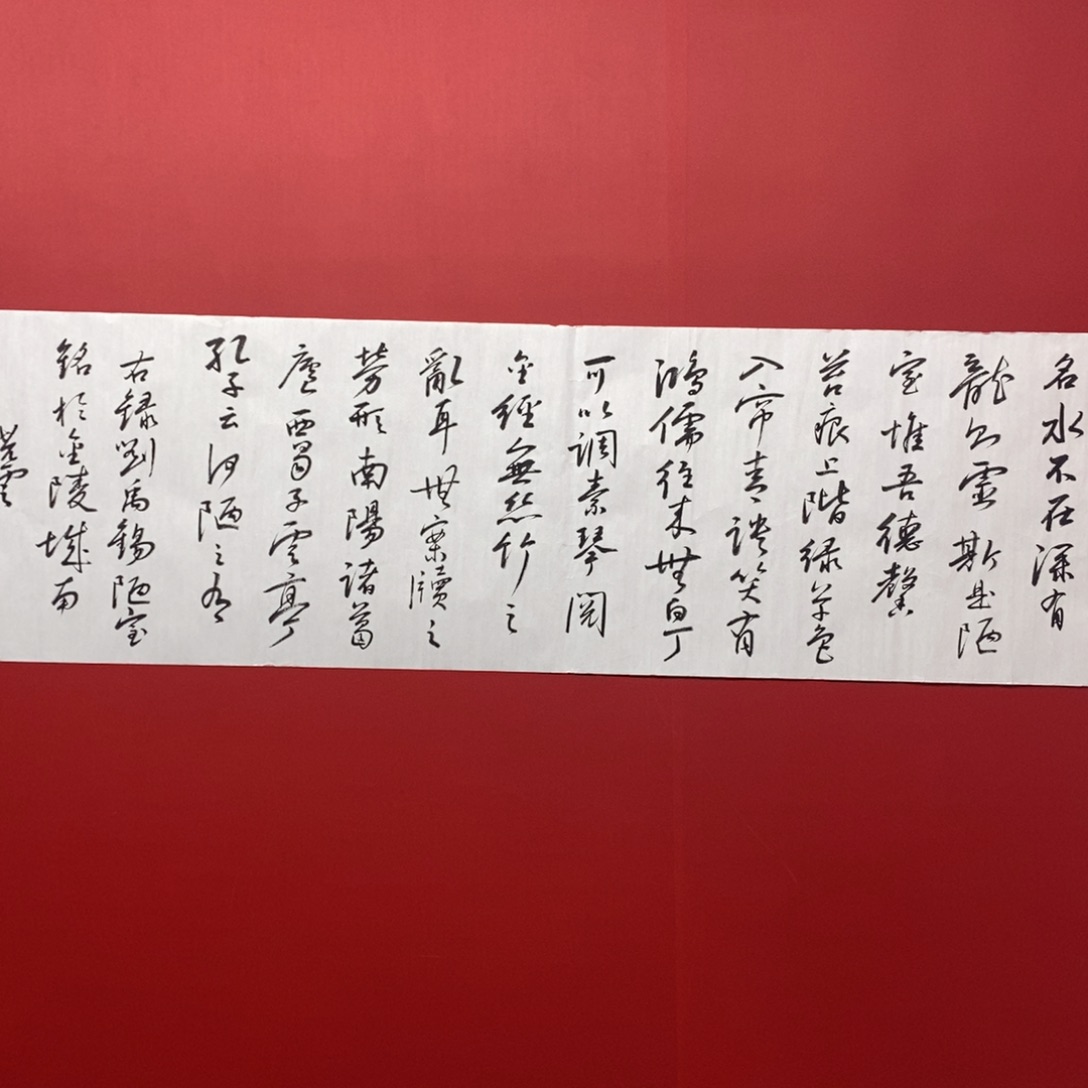 名水不在深有
龍則靈斯是陋
室惟吾德馨
苔痕上階綠草色
入帘青談笑有
鴻儒往來無白丁
可以調素琴閱
金經無絲竹之
亂耳無案牘之
勞形南陽諸葛
廬西蜀子雲亭
孔子云何陋之有
右錄劉禹錫陋室
銘於金陵城南